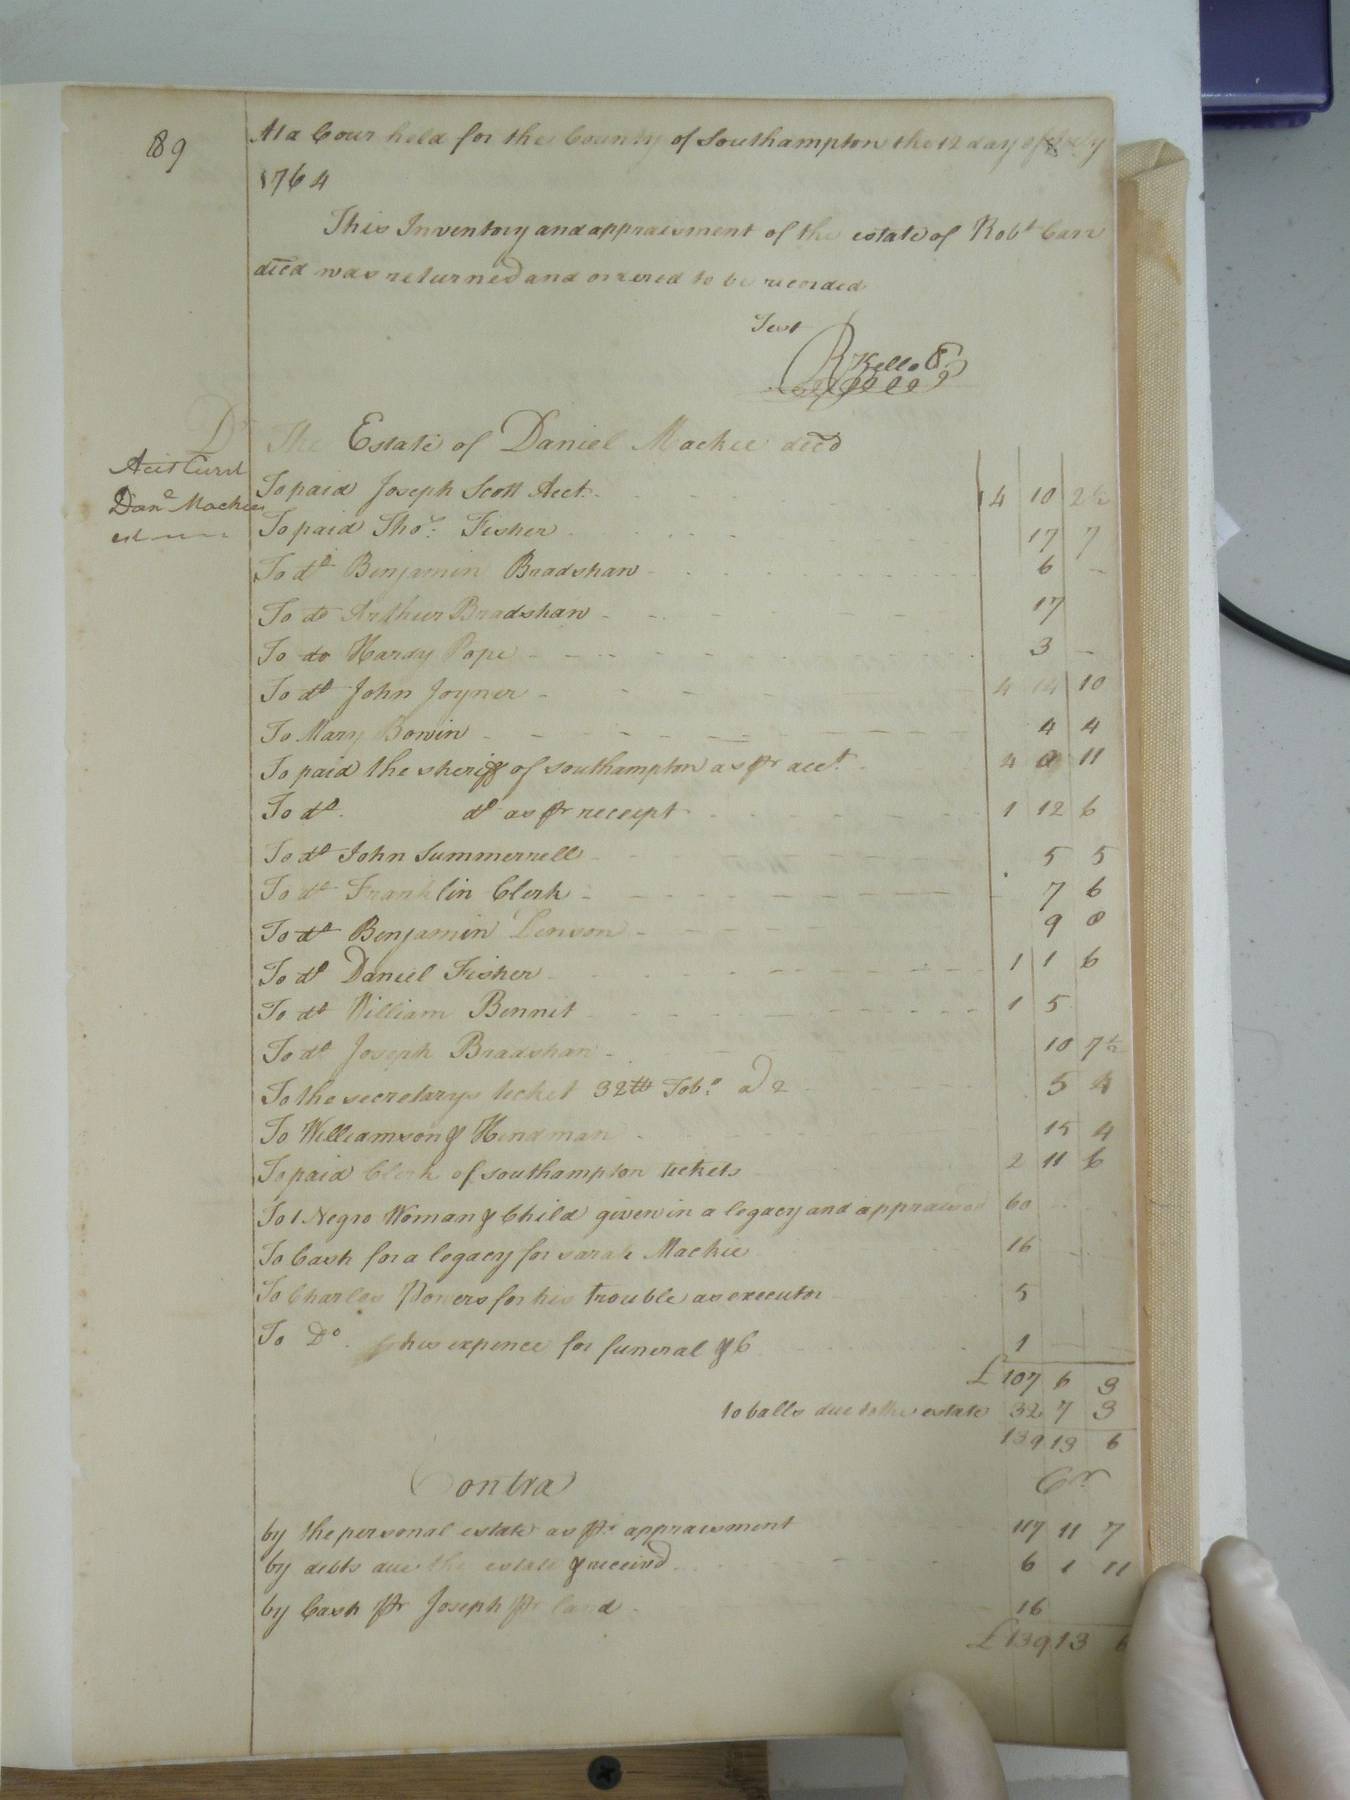 89
At a Cour held for the County of Southampton the 12 day of July
1764
This Inventory and appraisment of the estate of Robt Carr
decd was returned and orrered to be recorded
Test
R Kello
Dr The Estate of Daniel Mackie decd
Acct Curt
Danl Mackies
To paid Joseph Scott Acct. 14 10 2½
To paid Thos. Fisher 17 7
To do Benjamin Bradshaw 6 –
To do Arthur Bradshaw 17
To do Hardy Pope 3 –
To do John Joyner 4 14 10
To Mary Bowin 4 4
To paid the sheriff of southampton as pr acct. 4 11
To do. do as pr receipt 1 12 6
To do John Summerrell 5 5
To do Franklin Clerk 7 6
To do Benjamin 9 8
To do Daniel Fisher 1 1 6
To do William Bennit 1 5
To do Joseph Bradshaw 10 7½
To the secretarys ticket 32tt Tobo. a 2 5 4
To Williamson & Hindman 15 4
To paid Clerk of southampton tickets 2 11 6
To 1 Negro Woman & Child given in a legacy and appraised 60
To Cash for a legacy for sarah Mackie 16
To Charles Powers for his trouble as executor 5
To Do. his expence for funeral &C 1
£107 6 3
to balls due to the estate 32 7 3
139 13 6
Contra Cr
by the personal estate as pr. appraisment 117 11 7
by debts due the estate & received 6 1 11
by Cash pr Joseph pr land 16
£139 13 6